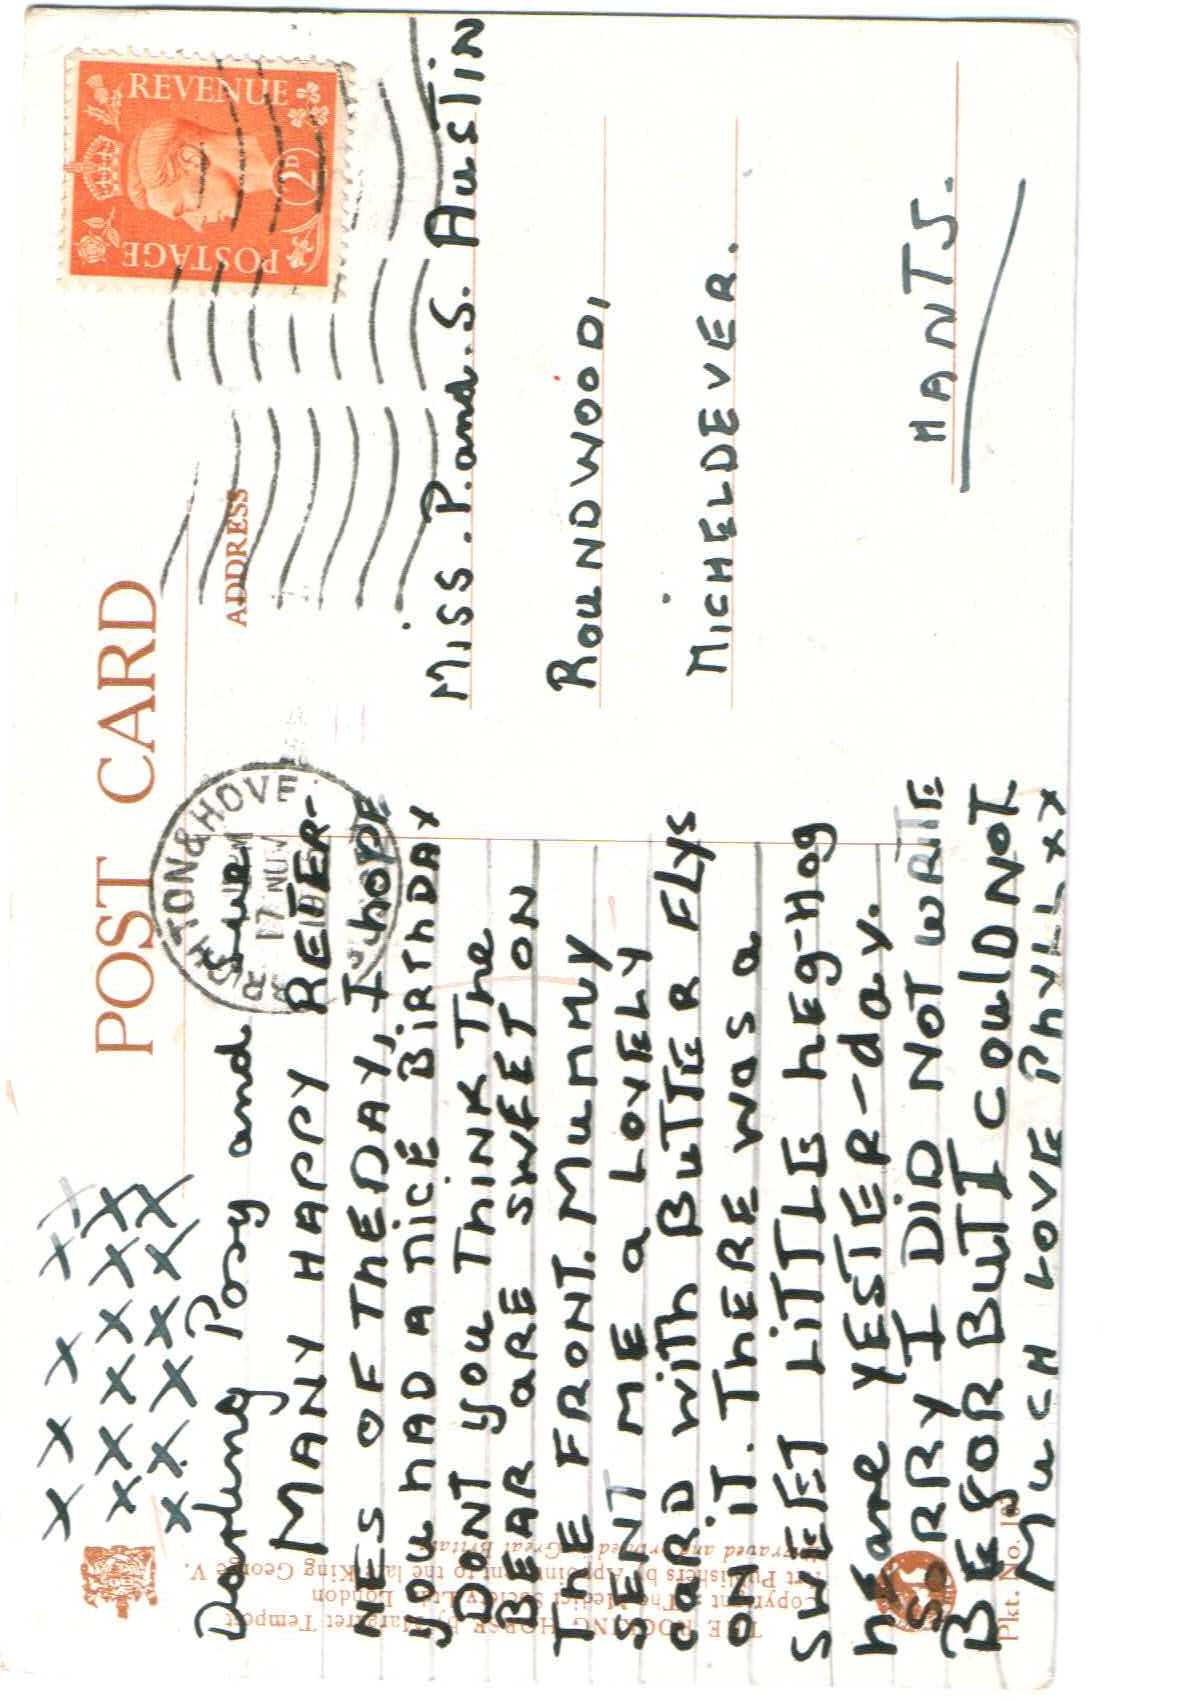 POST CARD
ADDRESS
POSTAGE
REVENUE
2D
BRIGHTON & HOVE
17 NOV
Darling Posy and
MANY HAPPY RETER-
NES OF THEDAY, I hOPE
you hAD A nicE BiRThDAY
DONT you ThiNK The
BEAR ARE SWEET ON
ThE FRONT. MuMMY
SENT ME a LOVELY
cARD with BuTTER FLYS
ON iT. ThERE was a
SWEET LiTTLE hEg-Hog
hEare YESTER-day.
SORRY I DiD NOT WRiTE
BEfOR BuT I CoulD NOT
MucH LOVE PhYLL xx
x x x x x
x x x x x
x x x x x
Miss. P. and. S. AusTiN
RouNDWOOD,
MicHELDEVER.
HANTS.
THE ROCKING HORSE by Margaret Tempest
Copyright The Medici Society Ltd. London
Art Publishers by Appointment to the late King George V.
Engraved and Printed in Great Britain
Pkt. No.